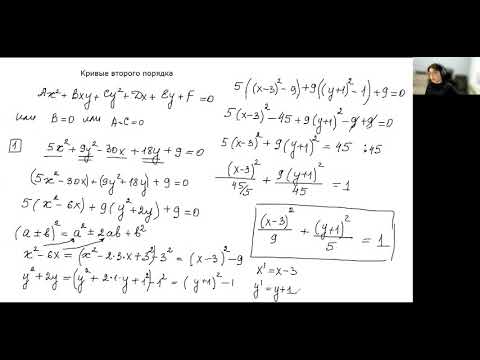 Кривые второго порядка
Ax² + Bxy + Cy² + Dx + Ey + F = 0
или B=0 или A·C=0
1 5x² + 9y² - 30x + 18y + 9 = 0
(5x² - 30x) + (9y² + 18y) + 9 = 0
5(x² - 6x) + 9(y² + 2y) + 9 = 0
(a ± b)² = a² ± 2ab + b²
x² - 6x = (x² - 2·3·x + 3²) - 3² = (x-3)² - 9
y² + 2y = (y² + 2·1·y + 1²) - 1² = (y+1)² - 1
5((x-3)² - 9) + 9((y+1)² - 1) + 9 = 0
5(x-3)² - 45 + 9(y+1)² - 9 + 9 = 0
5(x-3)² + 9(y+1)² = 45 :45
(x-3)²/45/5 + 9(y+1)²/45 = 1
(x-3)²/9 + (y+1)²/5 = 1
x' = x-3
y' = y+1